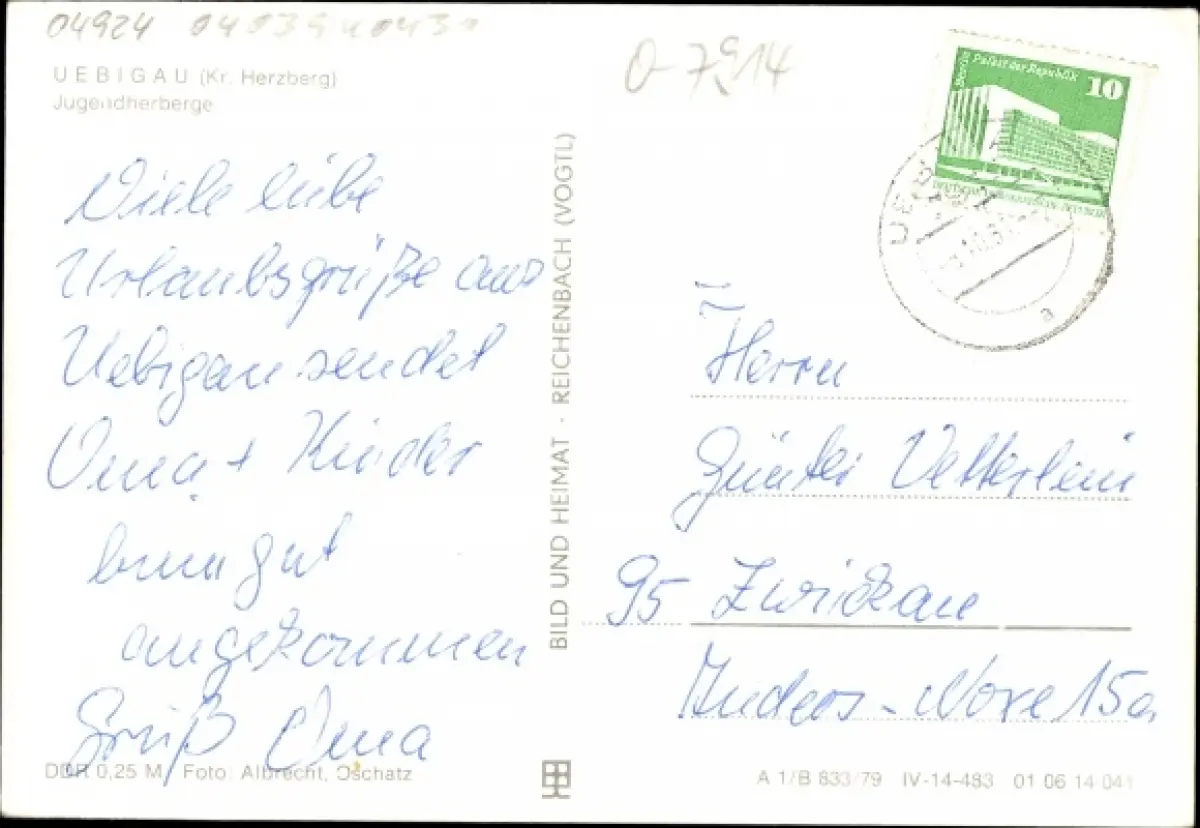 04924
UEBIGAU (Kr. Herzberg)
Jugendherberge
Viele liebe
Urlaubsgrüße aus
Uebigau sendet
Oma + Kinder
gut
angekommen
Gruß Oma
DDR 0,25 M Foto: Albrecht, Oschatz
BILD UND HEIMAT · REICHENBACH (VOGTL)
O-7914
Berlin Palast der Republik
10
DEUTSCHE DEMOKRATISCHE REPUBLIK
a
Herrn
Günter Vetterlein
95 Zwickau
Anders-Nexe 15a
A 1/B 833/79 IV-14-483 01 06 14 041